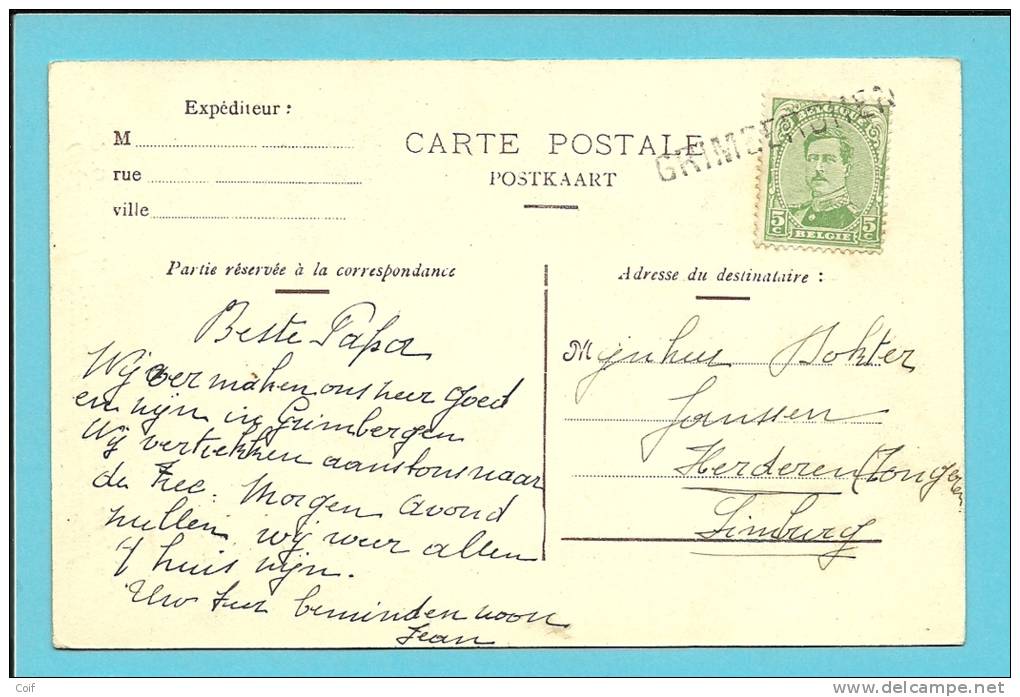 Expéditeur :
M
rue
ville
CARTE POSTALE
POSTKAART
GRIMBERGEN
BELGIQUE
5c 5c
BELGIË
Partie réservée à la correspondance
Adresse du destinataire :
Beste Papa
Wij vermaken ons zeer goed
en zijn in Grimbergen
Wij vertrekken aanstons naar
de Zee. Morgen avond
zullen wij weer allen
t huis zijn.
Uw zeer beminden zoon
Jean
Mijnheer Dokter
Janssen
Herderen (Tongeren
Limburg
Coif
www.delcampe.net